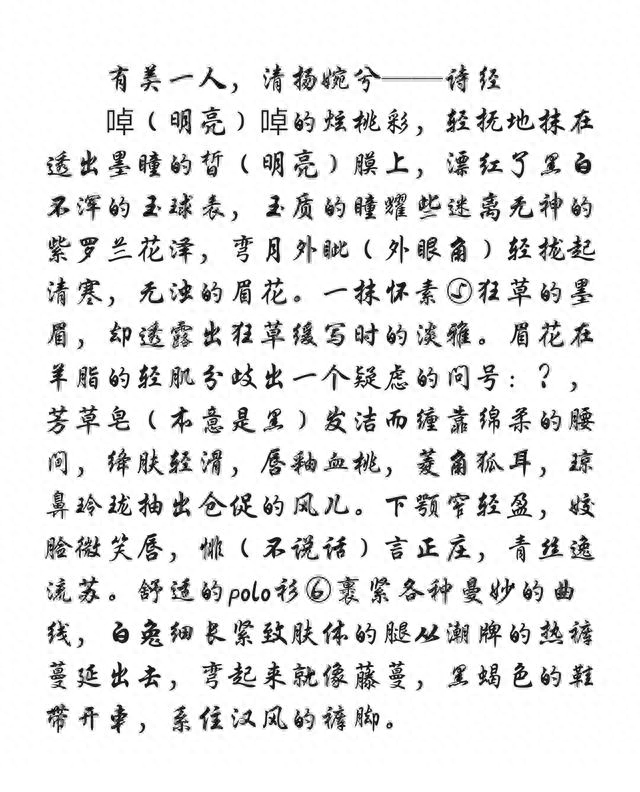 有美一人，清扬婉兮——诗经
啅（明亮）啅的炫桃彩，轻抚地抹在
透出墨瞳的晳（明亮）膜上，漂红了黑白
不浑的玉球表，玉质的瞳耀些迷离无神的
紫罗兰花泽，弯月外眦（外眼角）轻拢起
清寒，无浊的眉花。一抹怀素⑤狂草的墨
眉，却透露出狂草缓写时的淡雅。眉花在
羊脂的轻肌分歧出一个疑虑的问号：？，
芳草皂（本意是黑）发洁而缠靠绵柔的腰
间，绛肤轻滑，唇釉血桃，菱角狐耳，琼
鼻玲珑抽出仓促的风儿。下颚窄轻盈，姣
脸微笑唇，悱（不说话）言正庄，青丝逸
流苏。舒适的polo衫⑥裹紧各种曼妙的曲
线，白兔细长紧致肤体的腿从潮牌的热裤
蔓延出去，弯起来就像藤蔓，黑蝎色的鞋
带开车，系住汉风的裤脚。